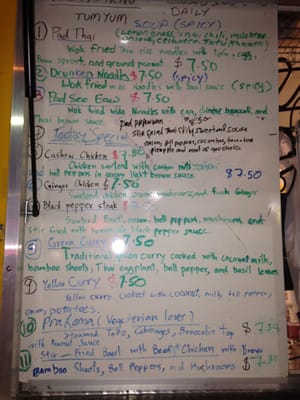 DAILY
TUM YUM SOUP (SPICY)
1 Pad Thai
Wok fried Thin rice noodles with tofu, egg,
Bean sprout, and ground peanut $7.50
2 Drunken Noodle $7.50 (spicy)
Wok fried wide Noodles with basil sauce (spicy)
3 Pad See Eaw $7.50
Wok fried wide Noodles with egg, chinese broccoli, and
Thai brown sauce
4 Today Special $8.50
Stir fried Thai style sweet and sour sauce
onion, bell pepper, cucumber, tomatoe
pineapple and
5 Cashew Chicken $7.50
Chicken sauteed with cashew nuts
and bell peppers in savory light brown sauce $7.50
6 Ginger Chicken $7.50
Sauteed chicken onion, mushrooms, and fresh Ginger
7 Black pepper steak
Sauteed Beef, onion, bell peppers, mushrooms, and
stir fried with black pepper sauce
8 Green Curry $7.50
Traditional green curry cooked with coconut milk,
bamboo shoots, Thai eggplant, bell pepper, and basil leaves
9 Yellow Curry $7.50
Yellow curry cooked with coconut, milk, bell pepper,
onion, potatoes.
10 (Vegeterian lover)
Steamed Tofu, Cabbages, Broccolie top
with Peanut Sauce
11 Stir-Fried Basil with Beef/Chicken with
Bamboo Shoots, Bell Peppers, and Mushrooms